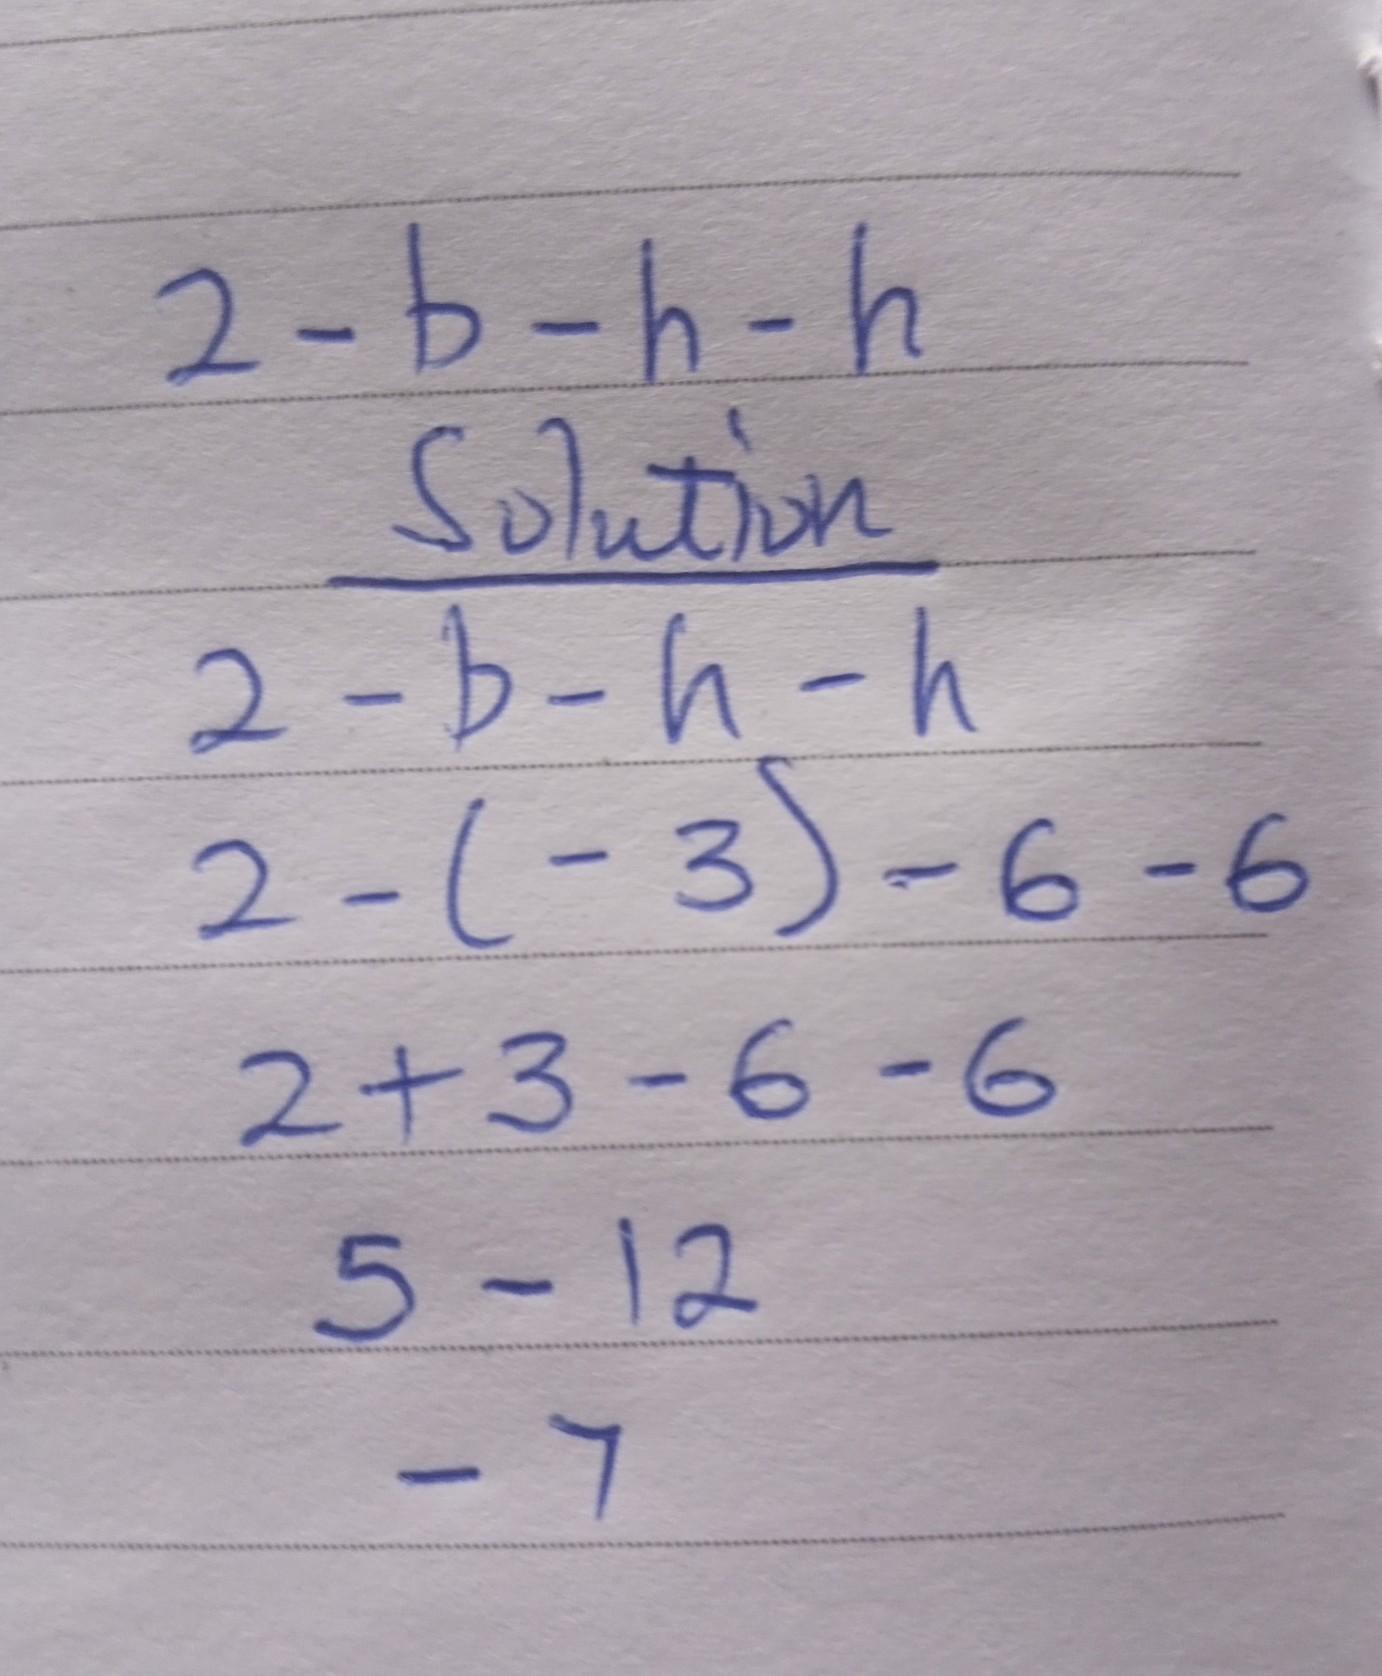 2 - b - h - h
Solution
2 - b - h - h
2 - (- 3) - 6 - 6
2 + 3 - 6 - 6
5 - 12
- 7